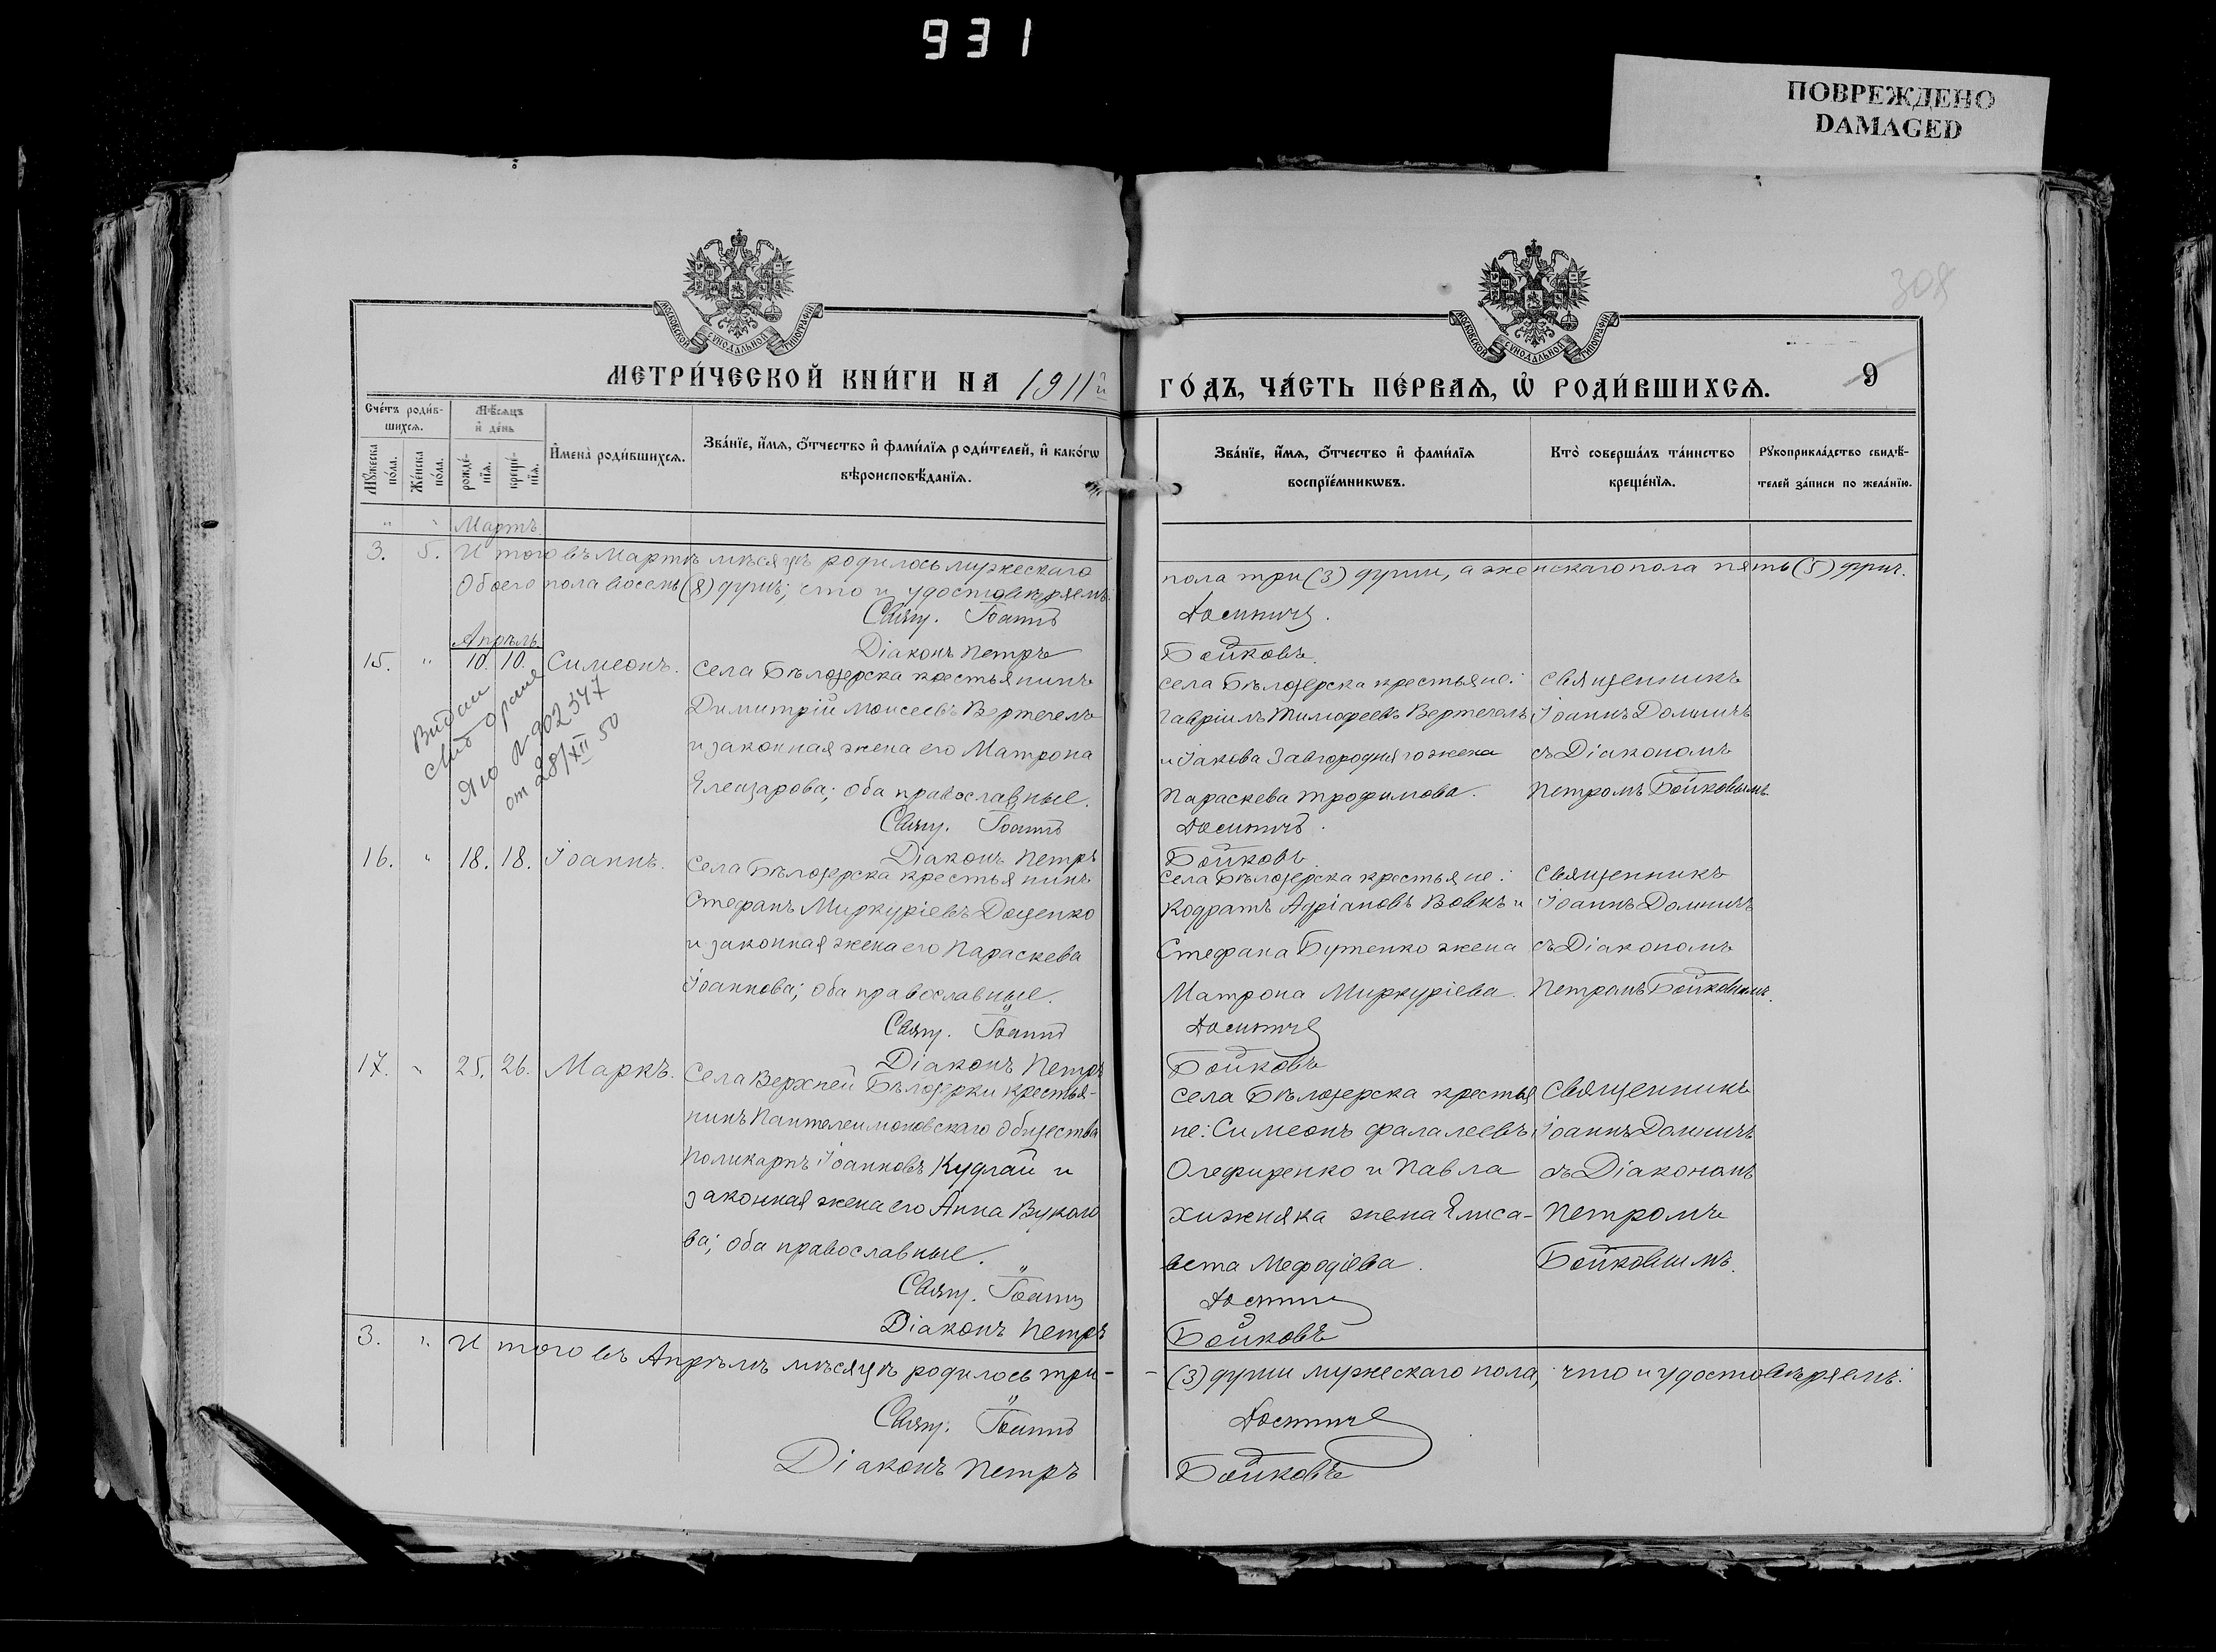 931
ПОВРЕЖДЕНО
DAMAGED
308
МОСКОВСКОЙ СѴНОДАЛЬНОЙ ТИПОГРАФІИ
МОСКОВСКОЙ СѴНОДАЛЬНОЙ ТИПОГРАФІИ
МЕТРИ́ЧЕСКОЙ КНИ́ГИ НА 1911й ГО́ДЪ, ЧА́СТЬ ПЕ́РВАѦ, Ѿ РОДИ́ВШИХСѦ. 9
Сче́тъ роди́в-
шихсѧ.
Мꙋ́жеска
по́ла.
Же́нска
по́ла.
Мѣ́сѧцъ
и҆ де́нь
рожде́-
нїѧ.
креще́-
нїѧ.
И҆мена̀ роди́вшихсѧ.
Зва́нїе, и҆́мѧ, ѻ҆́тчество и҆ фами́лїѧ роди́телей, и҆ како́гѡ
вѣроисповѣ́данїѧ.
Зва́нїе, и҆́мѧ, ѻ҆́тчество и҆ фами́лїѧ
воспрїе́мникѡвъ.
Кто̀ соверша́лъ та́инство
креще́нїѧ.
Рꙋкоприкла́дство свидѣ́-
телей за́писи по жела́нїю.
" " Мартъ.
3. 5. Итого въ Мартѣ мѣсяцѣ родилось мужескаго пола три (3) души, а женскаго пола пять (5) душ.
Обоего пола восемь (8) душъ; что и удостовѣряемъ.
Свящ. Іоаннъ
Діаконъ Петръ Бойковъ.
Апрѣль.
15. " 10. 10. Симеонъ.
Видани
№ 902347
от 28/XII 50
Села Бѣлозерска крестьянинъ
Димитрій Моисеевъ Вертегелъ
и законная жена его Матрона
Елеазарова; оба православные.
Свящ. Іоаннъ
Діаконъ Петръ
села Бѣлозерска крестьяне:
Гавріилъ Тимофеевъ Вертегелъ
и Іакова Завгородняго жена
Параскева Трофимова.
Бойковъ.
священникъ
Іоаннъ
съ Діакономъ
Петромъ Бойковымъ.
16. " 18. 18. Іоаннъ.
Села Бѣлозерска крестьянинъ
Стефанъ Миркуріевъ Доценко
и законная жена его Параскева
Іоаннова; оба православные.
Свящ. Іоаннъ
Діаконъ Петръ
Села Бѣлозерска крестьяне:
Кодратъ Адріановъ Вовкъ и
Стефана Бутенко жена
Матрона Миркуріева.
Бойковъ
Священникъ
Іоаннъ
съ Діакономъ
Петромъ Бойковымъ.
17. " 25. 26. Маркъ.
Села Верхней Бѣлозерки крестья-
нинъ Пантелеимоновскаго общества
Поликарпъ Іоанновъ Кудлай и
законная жена его Анна Вуколо
ва; оба православные.
Свящ. Іоаннъ
Діаконъ Петръ
Села Бѣлозерска крестья
не: Симеонъ Фалалеевъ
Олефиренко и Павла
Хижняка жена Елиса-
вета Мефодіева.
Бойковъ
Священникъ
Іоаннъ
съ Діакономъ
Петромъ
Бойковымъ.
3. " Итого въ Апрѣлѣ мѣсяцѣ родилось три - - (3) души мужескаго пола; что и удостовѣряемъ:
Свящ. Іоаннъ
Діаконъ Петръ Бойковъ